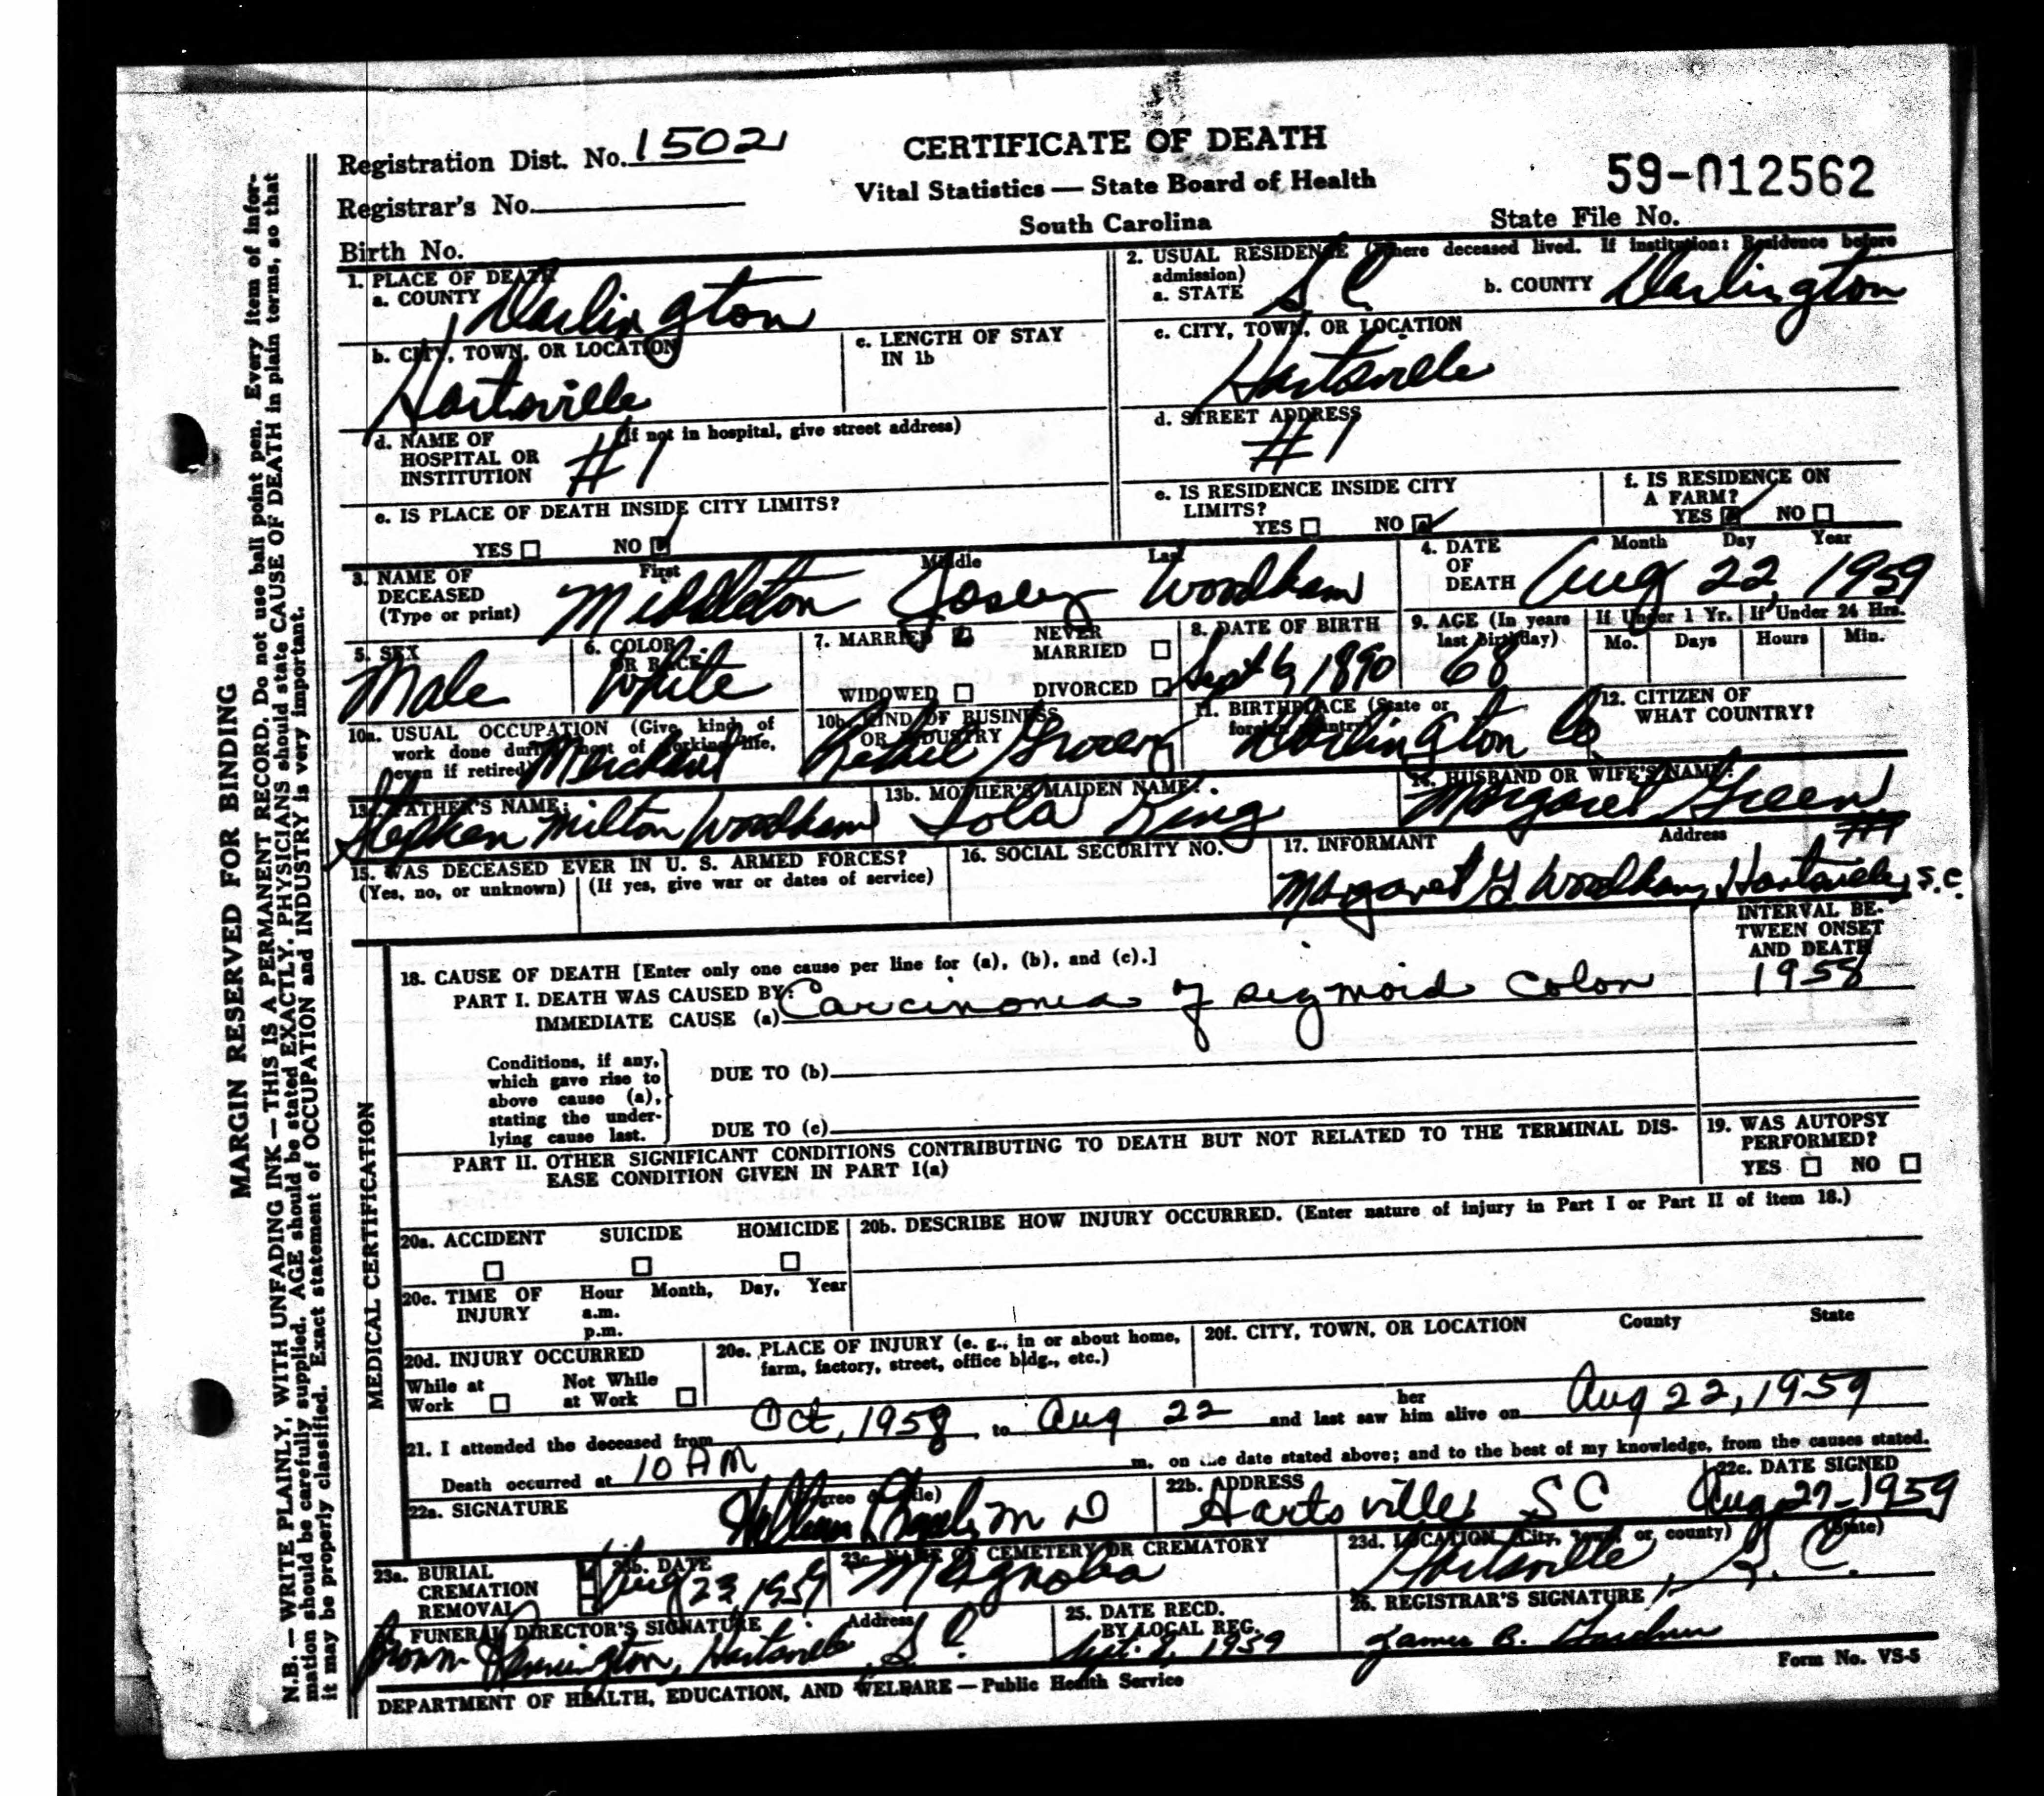 CERTIFICATE OF DEATH
Registration Dist. No. 15021
59-012562
Vital Statistics — State Board of Health
Registrar's No.
South Carolina
State File No.
Birth No.
1. PLACE OF DEATH
a. COUNTY Darlington
2. USUAL RESIDENCE (Where deceased lived. If institution: Residence before
admission)
a. STATE S C
b. COUNTY Darlington
b. CITY, TOWN, OR LOCATION
Hartsville
c. LENGTH OF STAY
IN 1b
c. CITY, TOWN, OR LOCATION
Hartsville
d. NAME OF (If not in hospital, give street address)
HOSPITAL OR
INSTITUTION #1
d. STREET ADDRESS
#1
e. IS PLACE OF DEATH INSIDE CITY LIMITS?
YES NO
e. IS RESIDENCE INSIDE CITY
LIMITS?
YES NO
f. IS RESIDENCE ON
A FARM?
YES NO
3. NAME OF
DECEASED
(Type or print)
First Middle Last
Middleton Josey Woodham
4. DATE
OF
DEATH
Month Day Year
Aug 22, 1959
5. SEX
Male
6. COLOR
OR RACE
White
7. MARRIED NEVER
MARRIED
WIDOWED DIVORCED
8. DATE OF BIRTH
Sept 6, 1890
9. AGE (In years
last birthday)
68
If Under 1 Yr. If Under 24 Hrs.
Mo. Days Hours Min.
10a. USUAL OCCUPATION (Give kind of
work done during most of working life,
even if retired) Merchant
10b. KIND OF BUSINESS
OR INDUSTRY
Retail Grocery
11. BIRTHPLACE (State or
foreign country)
Darlington Co
12. CITIZEN OF
WHAT COUNTRY?
13. FATHER'S NAME:
Stephen Milton Woodham
13b. MOTHER'S MAIDEN NAME:
Lola King
14. HUSBAND OR WIFE'S NAME:
Margaret Green
15. WAS DECEASED EVER IN U. S. ARMED FORCES?
(Yes, no, or unknown) (If yes, give war or dates of service)
16. SOCIAL SECURITY NO.
17. INFORMANT Address
#1
Margaret G. Woodham, Hartsville, S.C.
MEDICAL CERTIFICATION
18. CAUSE OF DEATH [Enter only one cause per line for (a), (b), and (c).]
PART I. DEATH WAS CAUSED BY:
IMMEDIATE CAUSE (a) Carcinoma of sigmoid colon
INTERVAL BE-
TWEEN ONSET
AND DEATH
1958
Conditions, if any,
which gave rise to
above cause (a),
stating the under-
lying cause last.
DUE TO (b)
DUE TO (c)
PART II. OTHER SIGNIFICANT CONDITIONS CONTRIBUTING TO DEATH BUT NOT RELATED TO THE TERMINAL DIS-
EASE CONDITION GIVEN IN PART I(a)
19. WAS AUTOPSY
PERFORMED?
YES NO
20a. ACCIDENT SUICIDE HOMICIDE
20b. DESCRIBE HOW INJURY OCCURRED. (Enter nature of injury in Part I or Part II of item 18.)
20c. TIME OF
INJURY
Hour Month, Day, Year
a.m.
p.m.
20d. INJURY OCCURRED
While at
Work
Not While
at Work
20e. PLACE OF INJURY (e. g., in or about home,
farm, factory, street, office bldg., etc.)
20f. CITY, TOWN, OR LOCATION County State
21. I attended the deceased from Oct, 1958, to Aug 22 and last saw her him alive on Aug 22, 1959
Death occurred at 10 AM m. on the date stated above; and to the best of my knowledge, from the causes stated.
22a. SIGNATURE (Degree or title)
William M D
22b. ADDRESS
Hartsville, S C
22c. DATE SIGNED
Aug 27-1959
23a. BURIAL
CREMATION
REMOVAL
23b. DATE
Aug 23, 1959
23c. NAME OF CEMETERY OR CREMATORY
Magnolia
23d. LOCATION (City, town, or county) (State)
Hartsville, S. C.
FUNERAL DIRECTOR'S SIGNATURE Address
Brown Pennington, Hartsville, S. C.
25. DATE RECD.
BY LOCAL REG.
Sept. 2, 1959
26. REGISTRAR'S SIGNATURE
James B.
Form No. VS-5
DEPARTMENT OF HEALTH, EDUCATION, AND WELFARE — Public Health Service
MARGIN RESERVED FOR BINDING
N.B. — WRITE PLAINLY, WITH UNFADING INK — THIS IS A PERMANENT RECORD. Do not use ball point pen. Every item of infor-
mation should be carefully supplied. AGE should be stated EXACTLY. PHYSICIANS should state CAUSE OF DEATH in plain terms, so that
it may be properly classified. Exact statement of OCCUPATION and INDUSTRY is very important.